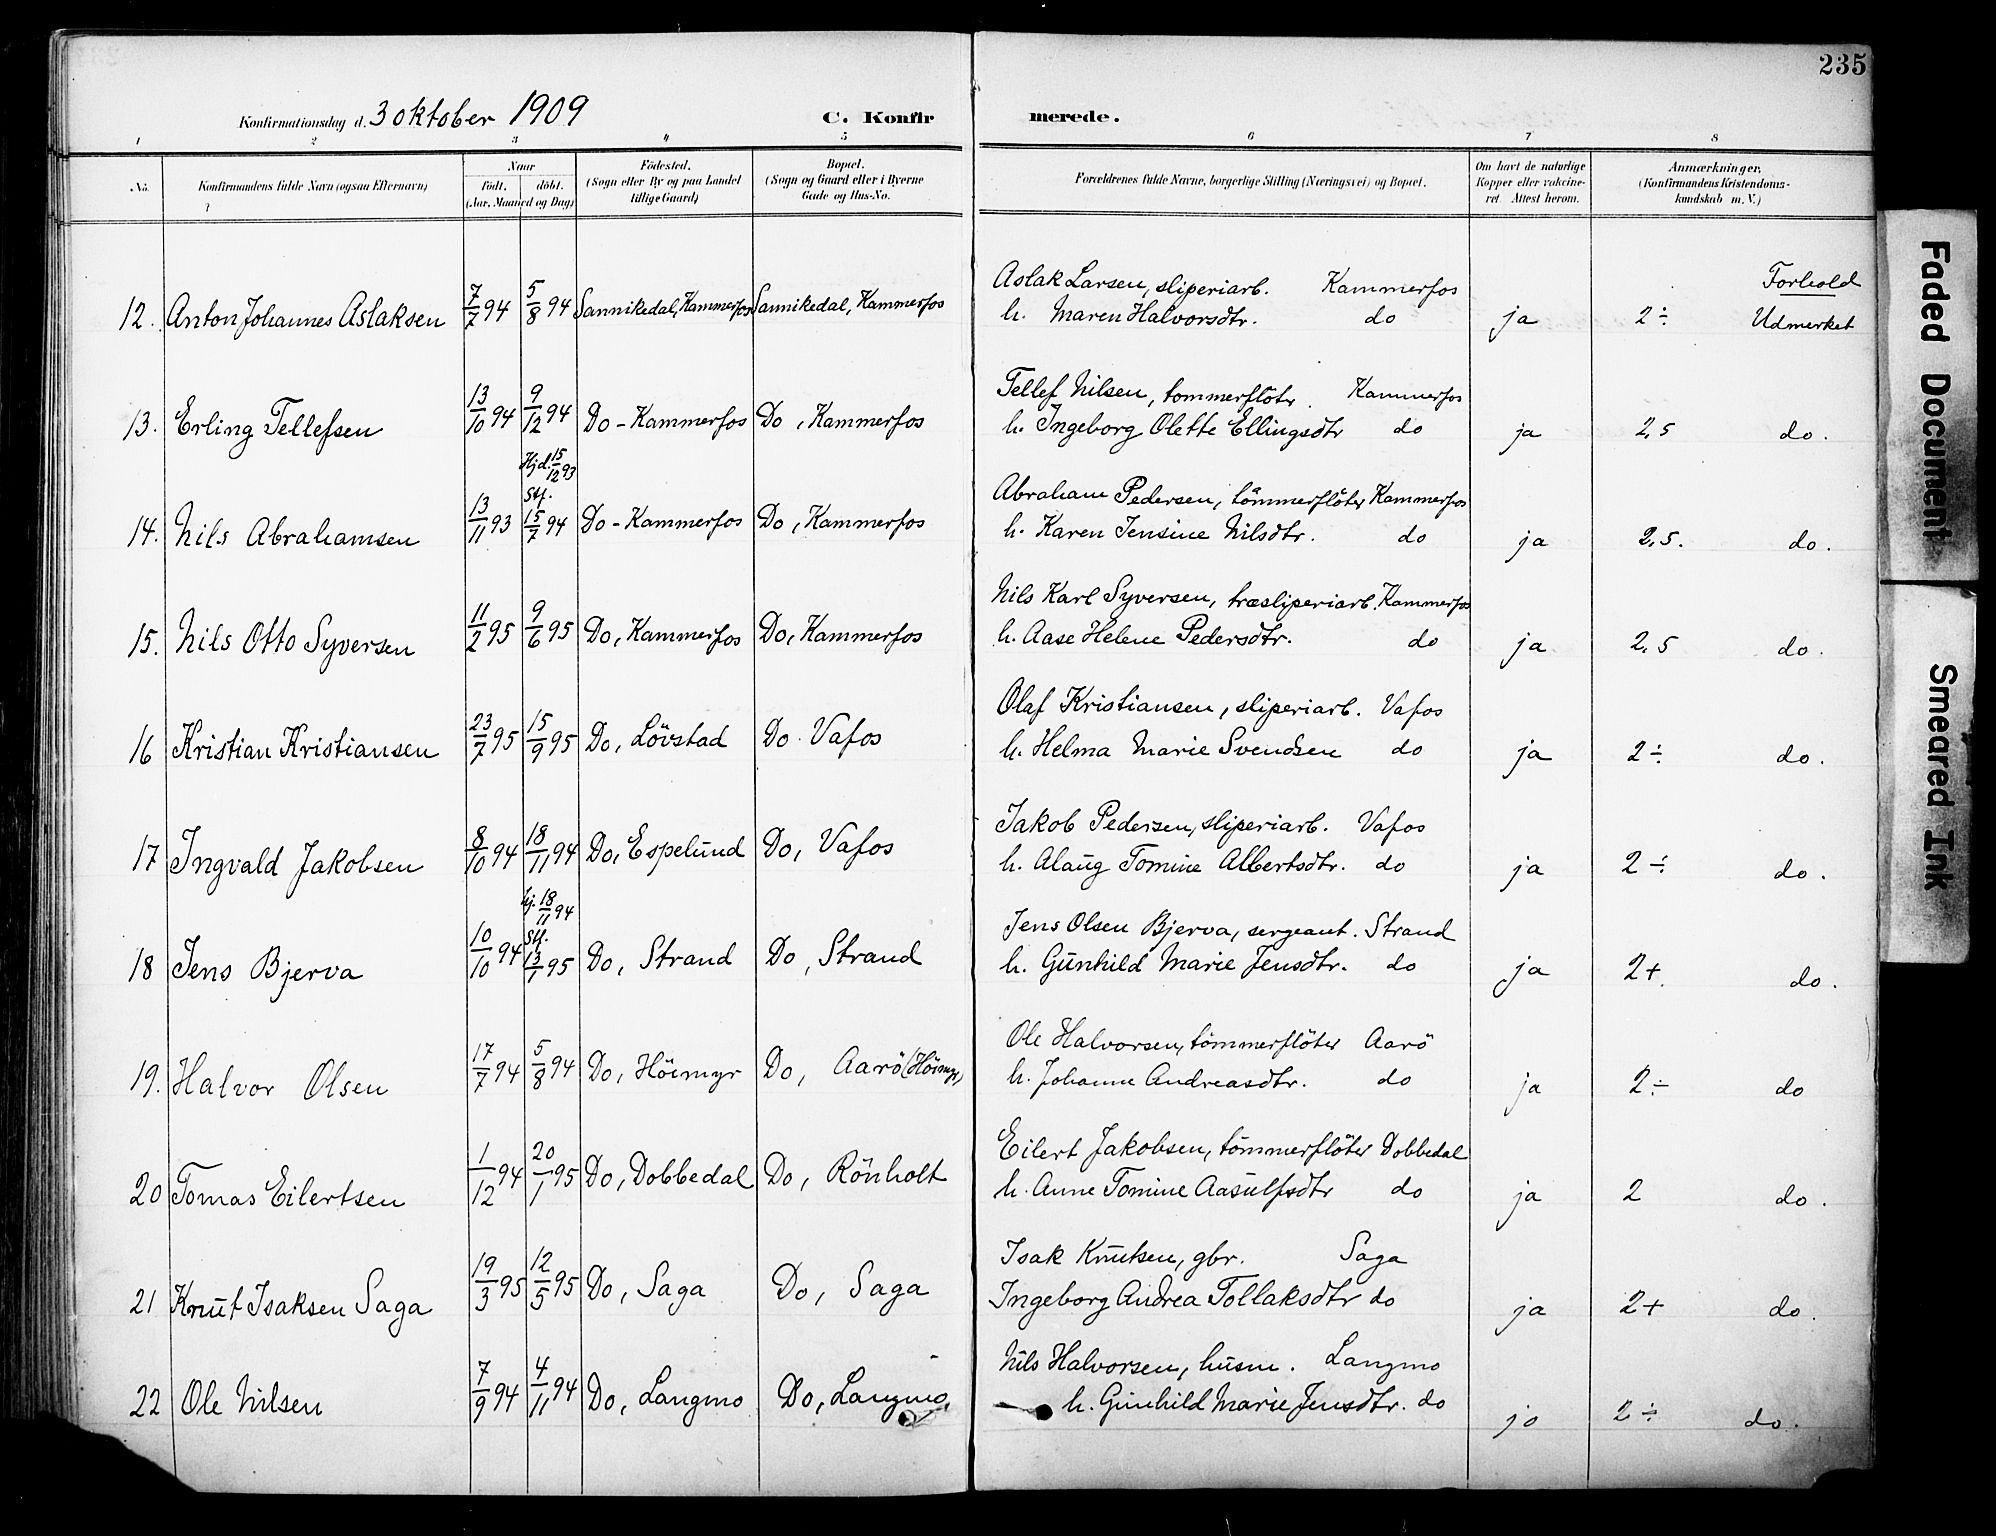 235
Konfirmationsdag d. 3 oktober 1909 C. Konfirmerede.
1 2 3 4 5 6 7 8
No. Konfirmandens fulde Navn (ogsaa Efternavn) Naar født. døbt. (Aar, Maaned og Dag) Födested. (Sogn eller By og paa Landet tillige Gaard) Bopæl. (Sogn og Gaard eller i Byerne Gade og Hus-No. Forældrenes fulde Navne, borgerlige Stilling (Næringsvei) og Bopæl. Om havt de naturlige Kopper eller vakcineret. Attest herom. Anmærkninger. (Konfirmandens Kristendomskundskab m. V.)
Aslak Larsen, sliperiarb. Kammerfos Forhold
12. Anton Johannes Aslaksen 7/7 94 5/8 94 Sannikedal, Kammerfos Sannikedal, Kammerfos h. Maren Halvorsdtr. do ja 2÷ Udmerket
Tellef Nilsen, tommerflöter. Kammerfos
13. Erling Tellefsen 13/10 94 9/12 94 Do - Kammerfos Do, Kammerfos h. Ingeborg Olette Ellingsdtr do ja 2,5 do.
Hjd. 15/12 93
Stf.
Abraham Pedersen, tömmerflöter Kammerfos
14. Nils Abrahamsen 13/11 93 15/7 94 Do - Kammerfos Do, Kammerfos h. Karen Jensine Nilsdtr. do ja 2,5. do.
Nils Karl Syversen, træsliperiarb. Kammerfos
15. Nils Otto Syversen 11/2 95 9/6 95 Do, Kammerfos Do, Kammerfos h. Aase Helene Pedersdtr. do ja 2,5 do.
Olaf Kristiansen, sliperiarb. Vafos
16 Kristian Kristiansen 23/7 95 15/9 95 Do, Lövstad Do. Vafos h. Helma Marie Svendsen do ja 2÷ do.
Jakob Pedersen, sliperiarb. Vafos
17 Ingvald Jakobsen 8/10 94 18/11 94 Do, Espelund Do, Vafos h. Alaug Tomine Albertsdtr. do ja 2÷ do.
hj. 18/11 94
Stf.
Jens Olsen Bjerva, sergeant. Strand
18 Jens Bjerva 10/10 94 13/1 95 Do, Strand Do, Strand h. Gunhild Marie Jensdtr. do ja 2+ do.
Ole Halvorsen, tömmerflöter Aarö
19. Halvor Olsen 17/7 94 5/8 94 Do, Höimyr Do, Aarö (Höimyr) h. Johanne Andreasdtr. do ja 2÷ do
Eilert Jakobsen, tömmerflöter Dobbedal
20 Tomas Eilertsen 1/12 94 20/1 95 Do, Dobbedal Do, Rönholt h. Anne Tomine Aasulfsdtr do ja 2 do.
Isak Knutsen, gbr. Saga
21 Knut Isaksen Saga 19/3 95 12/5 95 Do, Saga Do, Saga Ingeborg Andrea Tollaksdtr do ja 2+ do.
Nils Halvorsen, husm. Langmo
22 Ole Nilsen 7/9 94 4/11 94 Do, Langmo Do, Langmo h. Gunhild Marie Jensdtr. do ja 2÷ do.
Faded Document
Smeared Ink